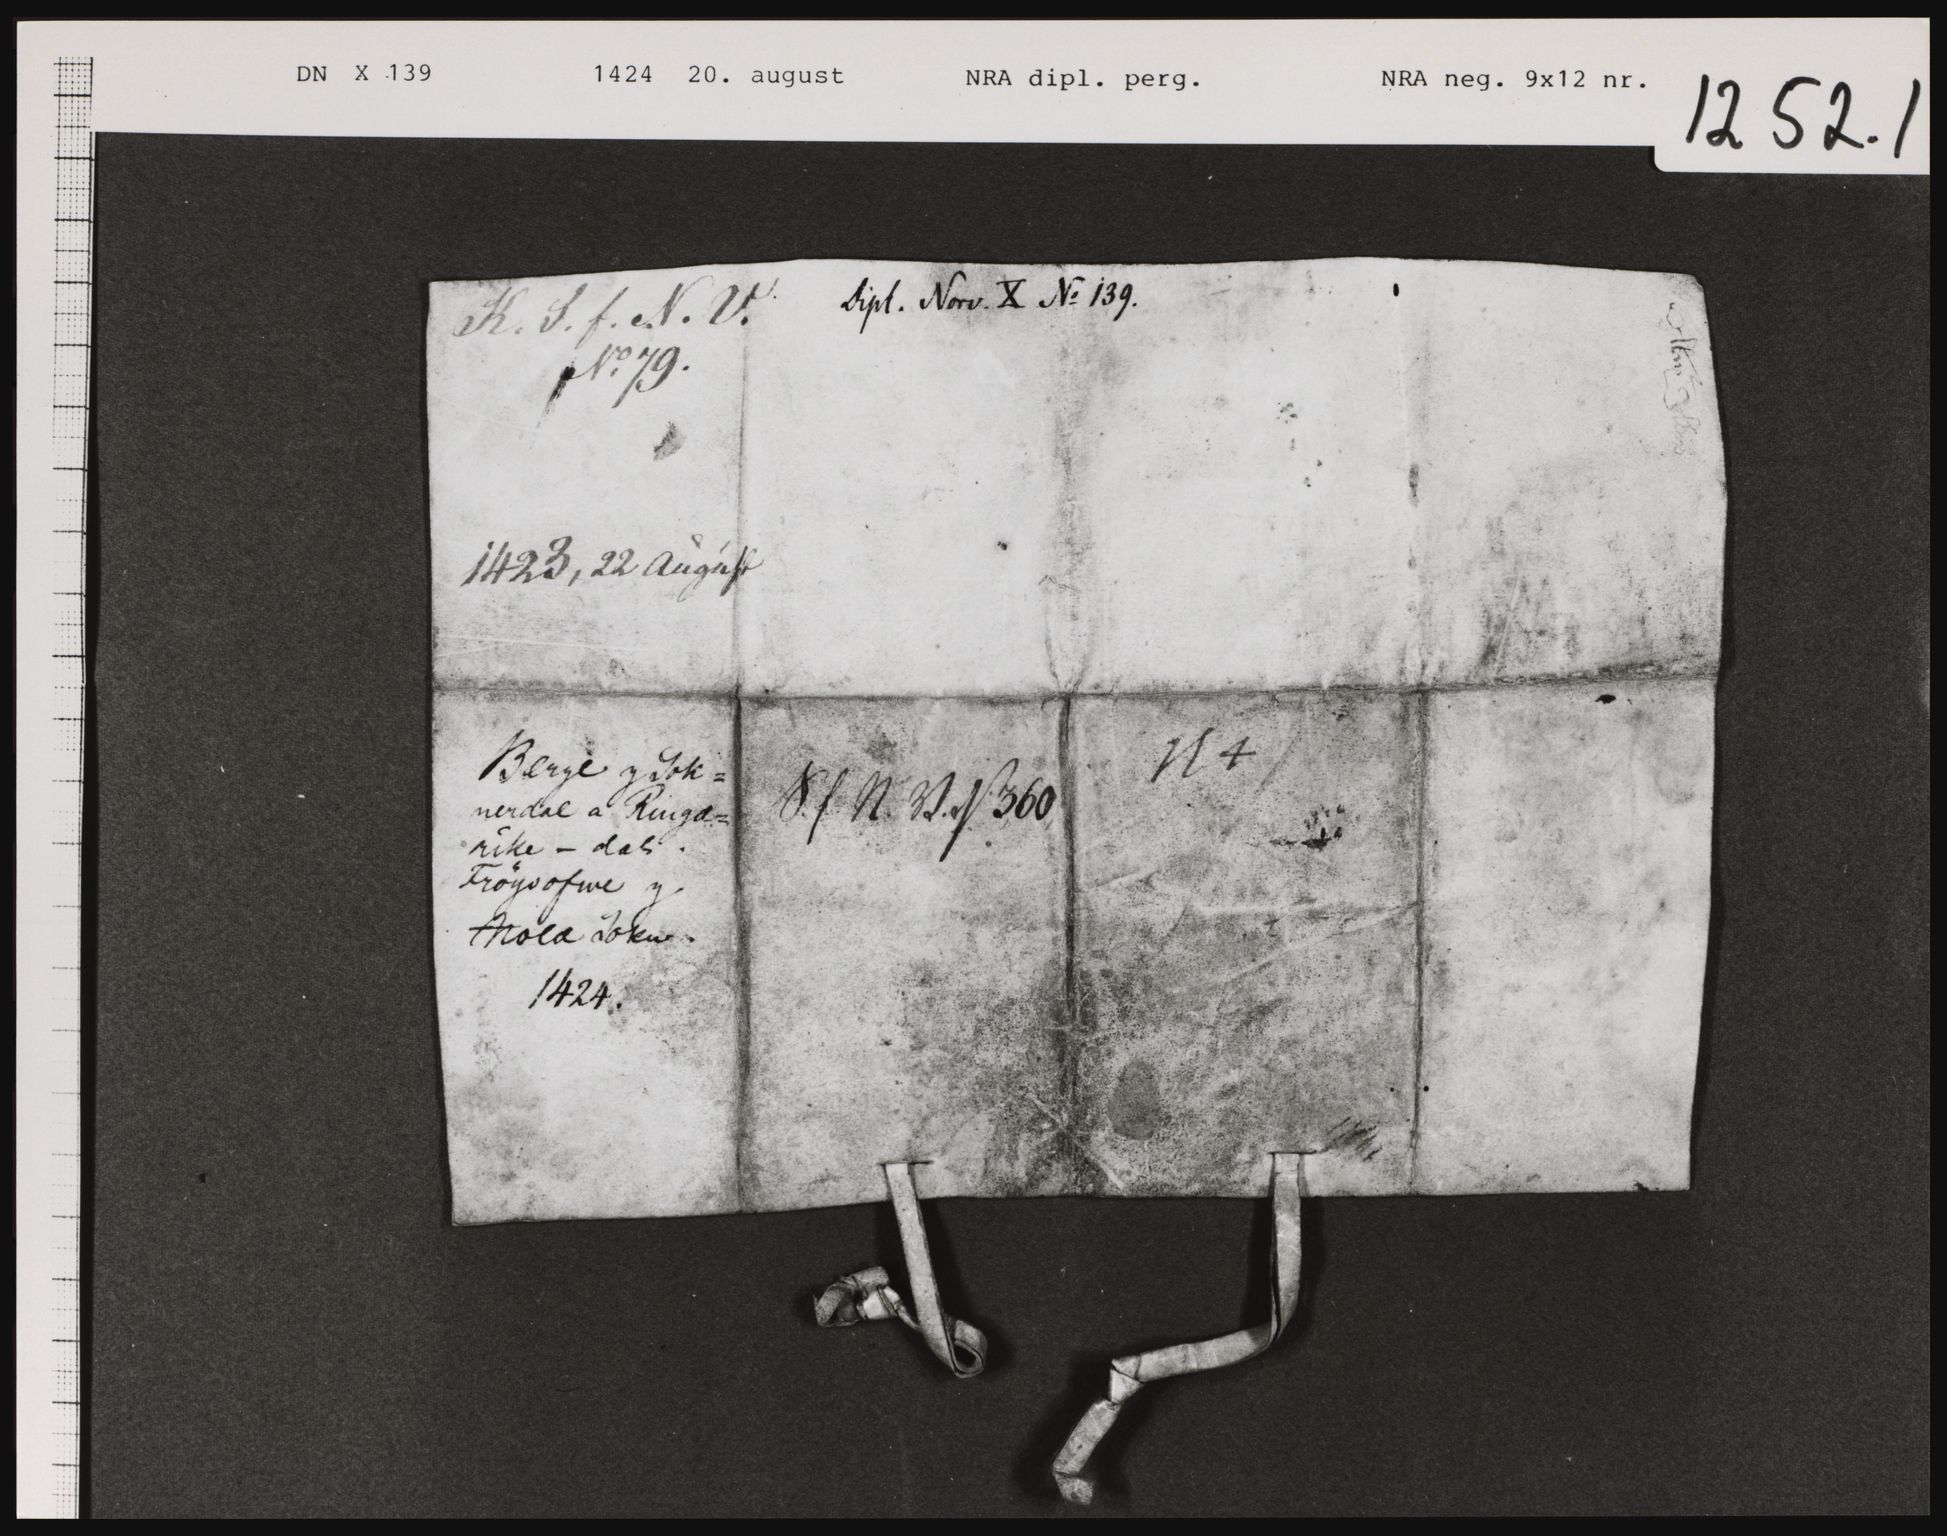 DN X 139 1424 20. august NRA dipl. perg. NRA neg. 9x12 nr. 1252.1
K. S. f. N. V.
No 79.
Dipl. Norv. X No 139.
1423, 22 August
Berge y Sok=
nerdal a Ringa=
rike - dat.
Fröysofwe y
Mola Sokn.
1424.
S. f. N. V. N 360
N 4